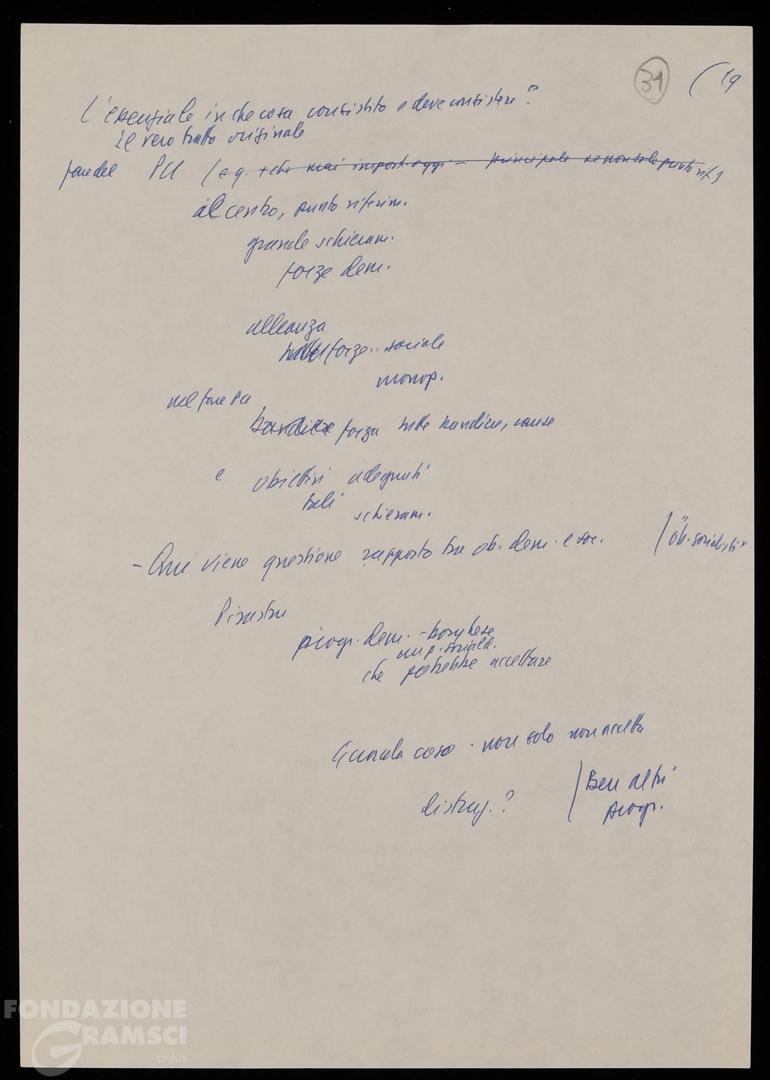 31 (19
L'essenziale in che cosa consistito e deve consistere?
Il vero tratto originale
fare del PCI (e q. + che mai import. oggi - principale se non solo punto rif.)
al centro, punto riferim.
grande schieram.
forze dem.
alleanza
forze.. sociale
monop.
nel fare PCI
forza tutte bandiere, cause
e obiettivi adeguati
tali
schieram.
- Qui viene questione rapporto tra ob. dem. e soc. / "ob. socialisti"
Pirastu
progr. dem. - borghese
che potrebbe accettare
Guarda caso - non solo non accetta
distrug.? / Ben altri
progr.
FONDAZIONE
GRAMSCI
onlus